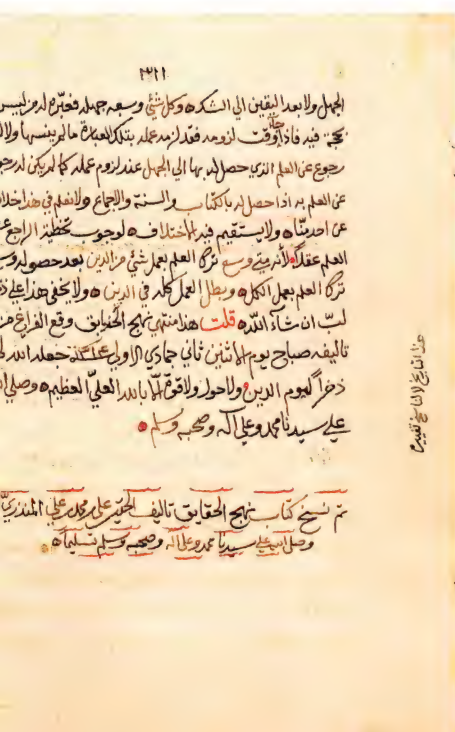 الجهل ولا بعد اليقين الى الشكّ ه وكل شئ وسعه جهله فغيره له مزليس
حجة فيه فاذا وقت لزومه فقد لزمه علمه بتلك العبادة مالم ينسها ولا
رجوع عن العلم الذي حصل له بها الى الجهل عند لزوم عمله كما لم يكن له رجو
عن العلم به اذا حصل له بالكتاب والسنة والاجماع ولا نعلم في هذا خلا
عن احد منّا ه ولا يستقيم فيه الاختلاف ه لوجوب تخطئة الراجع ع
العلم عقلاً ه لأنه متى وسع ترك العلم بعمل شئ من الدين بعد حصوله وس
ترك العلم بعمل الكل ه وبطل العمل كله في الدين ه ولا يخفى هذا على ذ
لبّ ان شآء اللّه ه قلت هذا منتهى نهج الحقايق وقع الفراغ من
تاليفه صباح يوم الاثنين ثاني جمادي الاولى جعله الله
ذخراً ليوم الدين ولا حول ولا قوة الّا بالله العليّ العظيم ه وصلى ا
على سيدنا محمد وعلى آله وصحبه وسلم ه
هذا التاريخ لا لناسخ
تم نسخ كتاب نهج الحقايق تاليف علي بن محمد بن علي المنذريّ
وصلى الله على سيدنا محمد وعلى آله وصحبه وسلم تسليماً ه